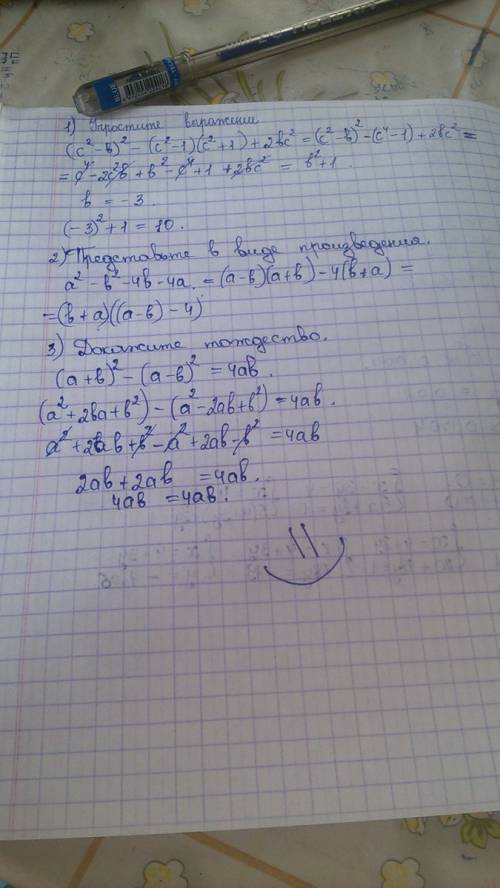 1) Упростите выражении
(c²-b)² - (c²-1)(c²+1) + 2bc² = (c²-b)² - (c⁴-1) + 2bc² =
= c⁴ - 2c²b + b² - c⁴ + 1 + 2bc² = b² + 1.
b = -3.
(-3)² + 1 = 10.
2) Представьте в виде произведения.
a² - b² - 4b - 4a. = (a-b)(a+b) - 4(b+a) =
= (b+a)((a-b) - 4)
3) Докажите тождество.
(a+b)² - (a-b)² = 4ab.
(a² + 2ba + b²) - (a² - 2ab + b²) = 4ab.
a² + 2ab + b² - a² + 2ab - b² = 4ab
2ab + 2ab = 4ab.
4ab = 4ab!